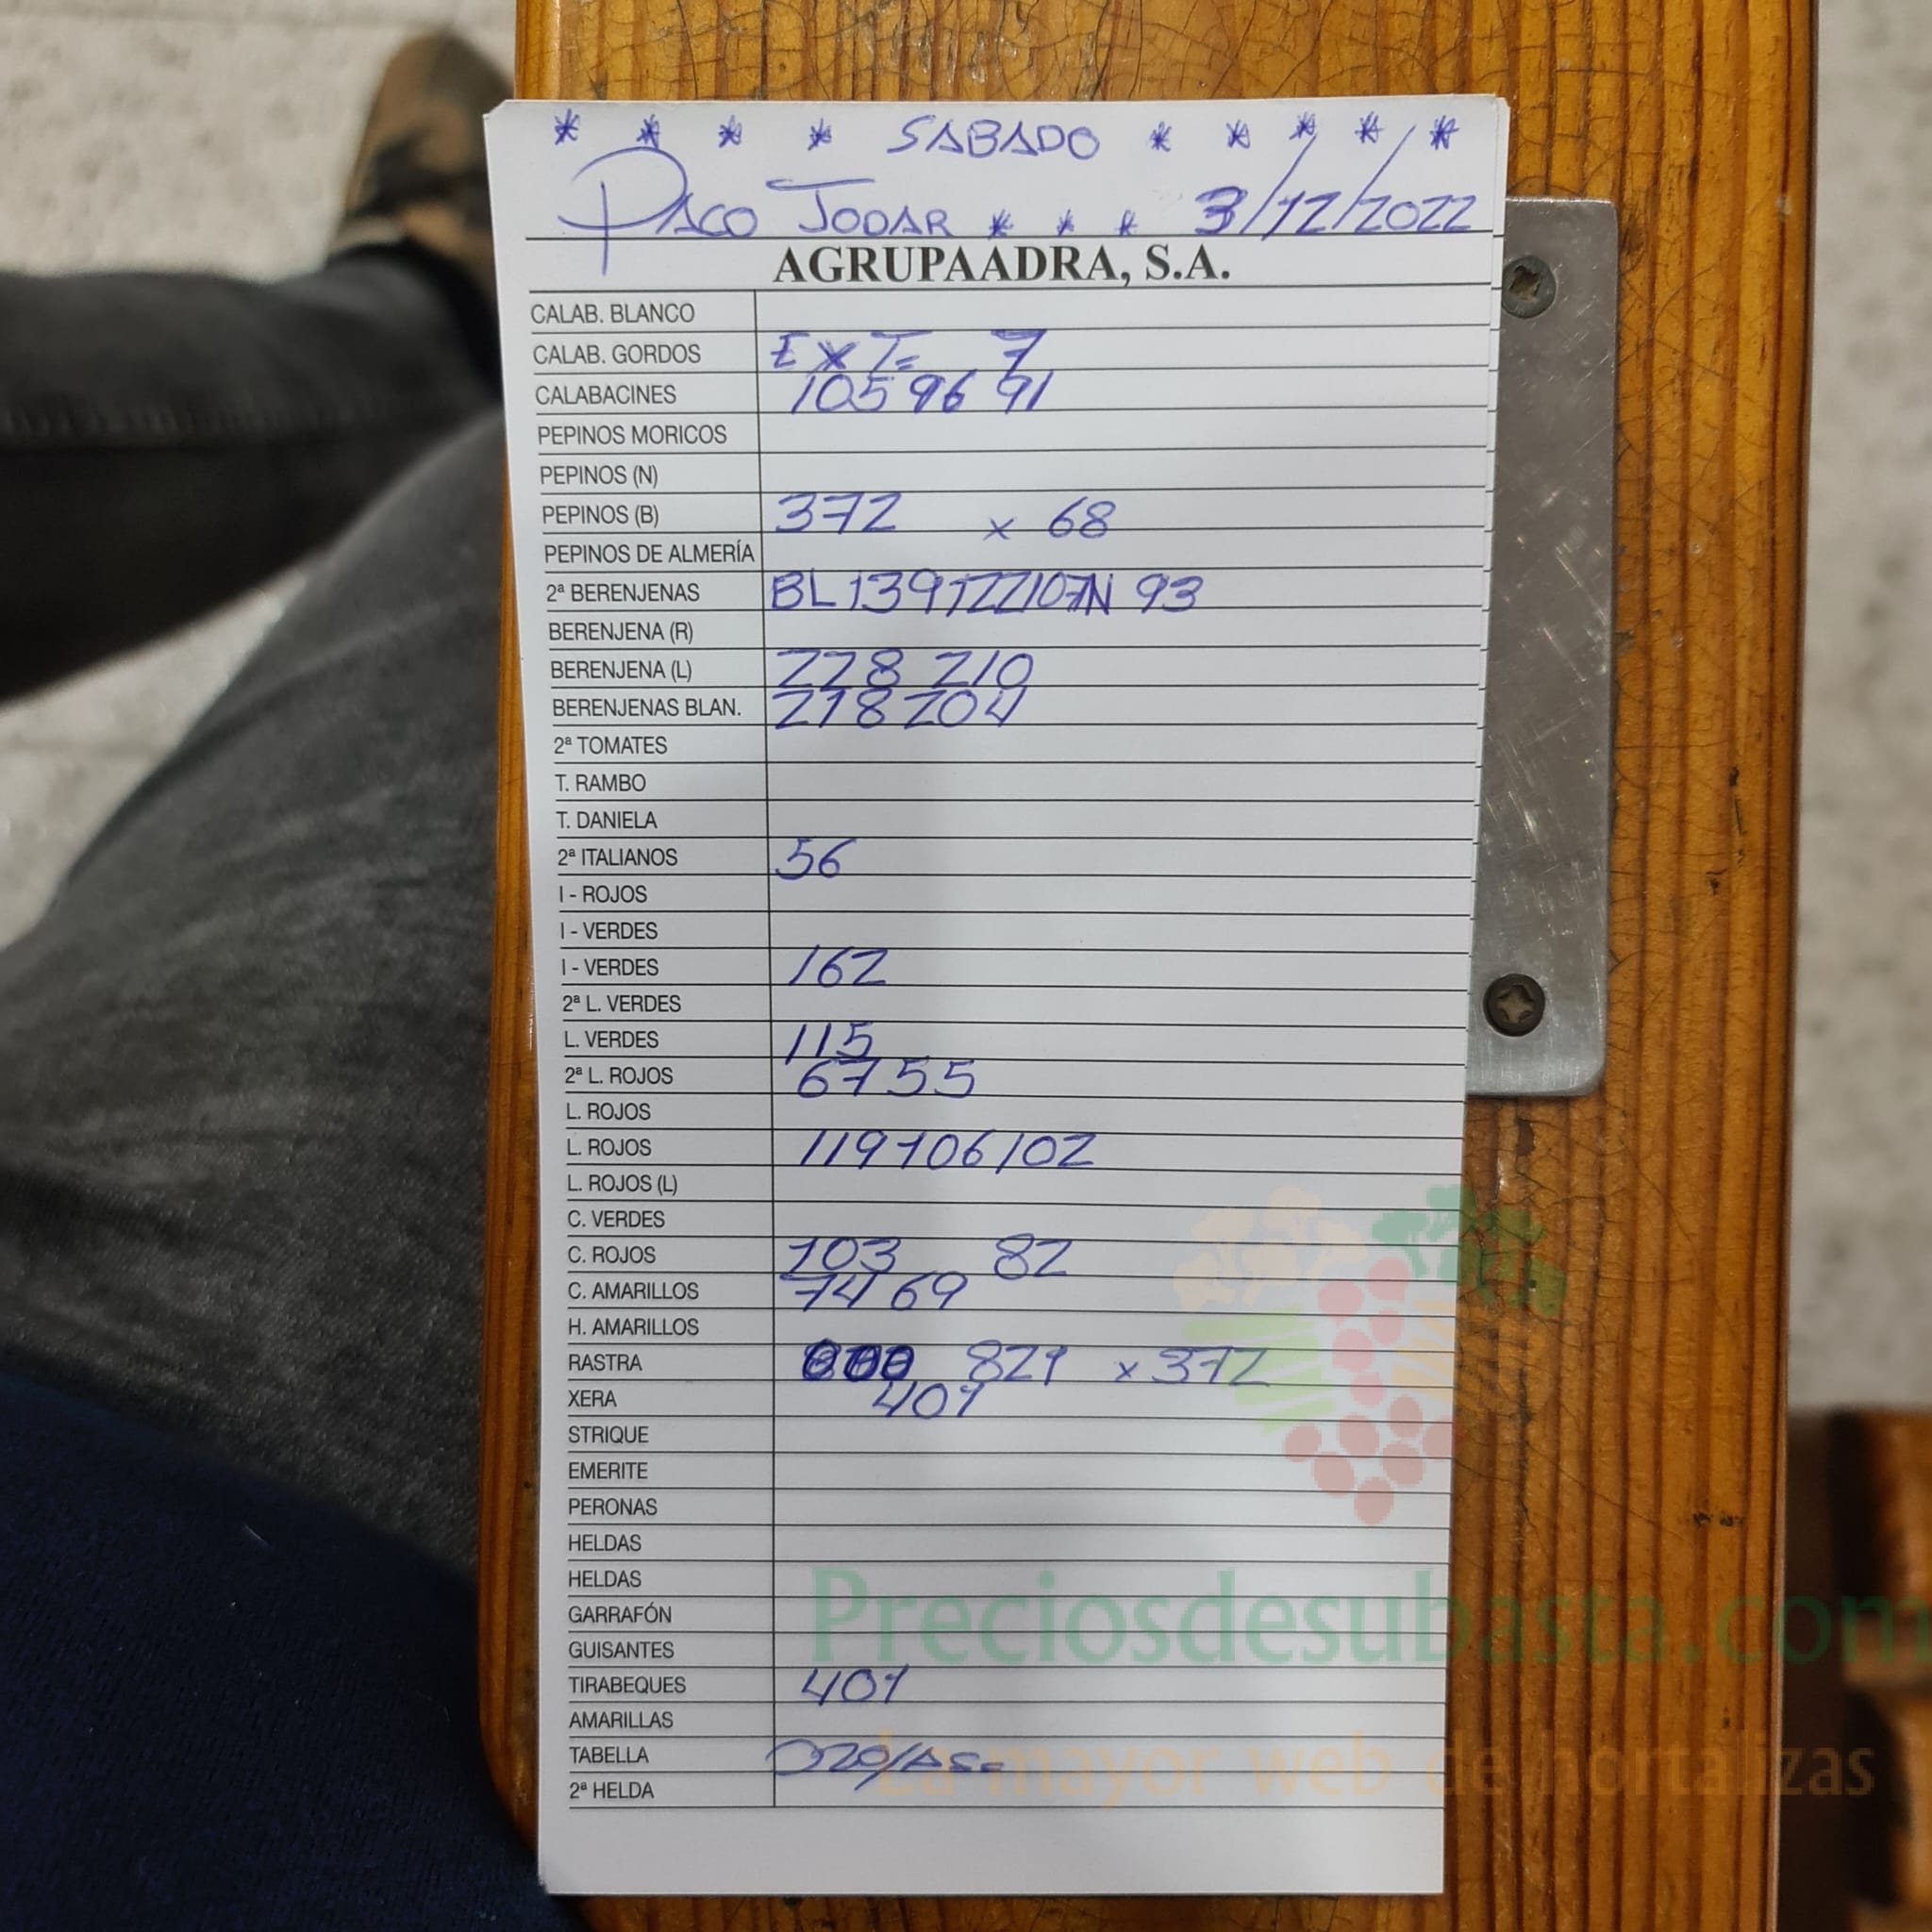 * * * * SABADO * * * * *
PACO JODAR * * * 3/12/2022
AGRUPAADRA, S.A.
CALAB. BLANCO
CALAB. GORDOS EXT= 7
CALABACINES 105 96 91
PEPINOS MORICOS
PEPINOS (N)
PEPINOS (B) 372 x 68
PEPINOS DE ALMERÍA
2ª BERENJENAS BL 139 122 107 N 93
BERENJENA (R)
BERENJENA (L) 228 210
BERENJENAS BLAN. 218 204
2ª TOMATES
T. RAMBO
T. DANIELA
2ª ITALIANOS 56
I - ROJOS
I - VERDES
I - VERDES 162
2ª L. VERDES
L. VERDES 115
2ª L. ROJOS 67 55
L. ROJOS
L. ROJOS 119 106 102
L. ROJOS (L)
C. VERDES
C. ROJOS 103 82
C. AMARILLOS 74 69
H. AMARILLOS
RASTRA 821 x 372
XERA 401
STRIQUE
EMERITE
PERONAS
HELDAS
HELDAS
GARRAFÓN
GUISANTES
TIRABEQUES 401
AMARILLAS
TABELLA
2ª HELDA
Preciosdesubasta.com
La mayor web de hortalizas